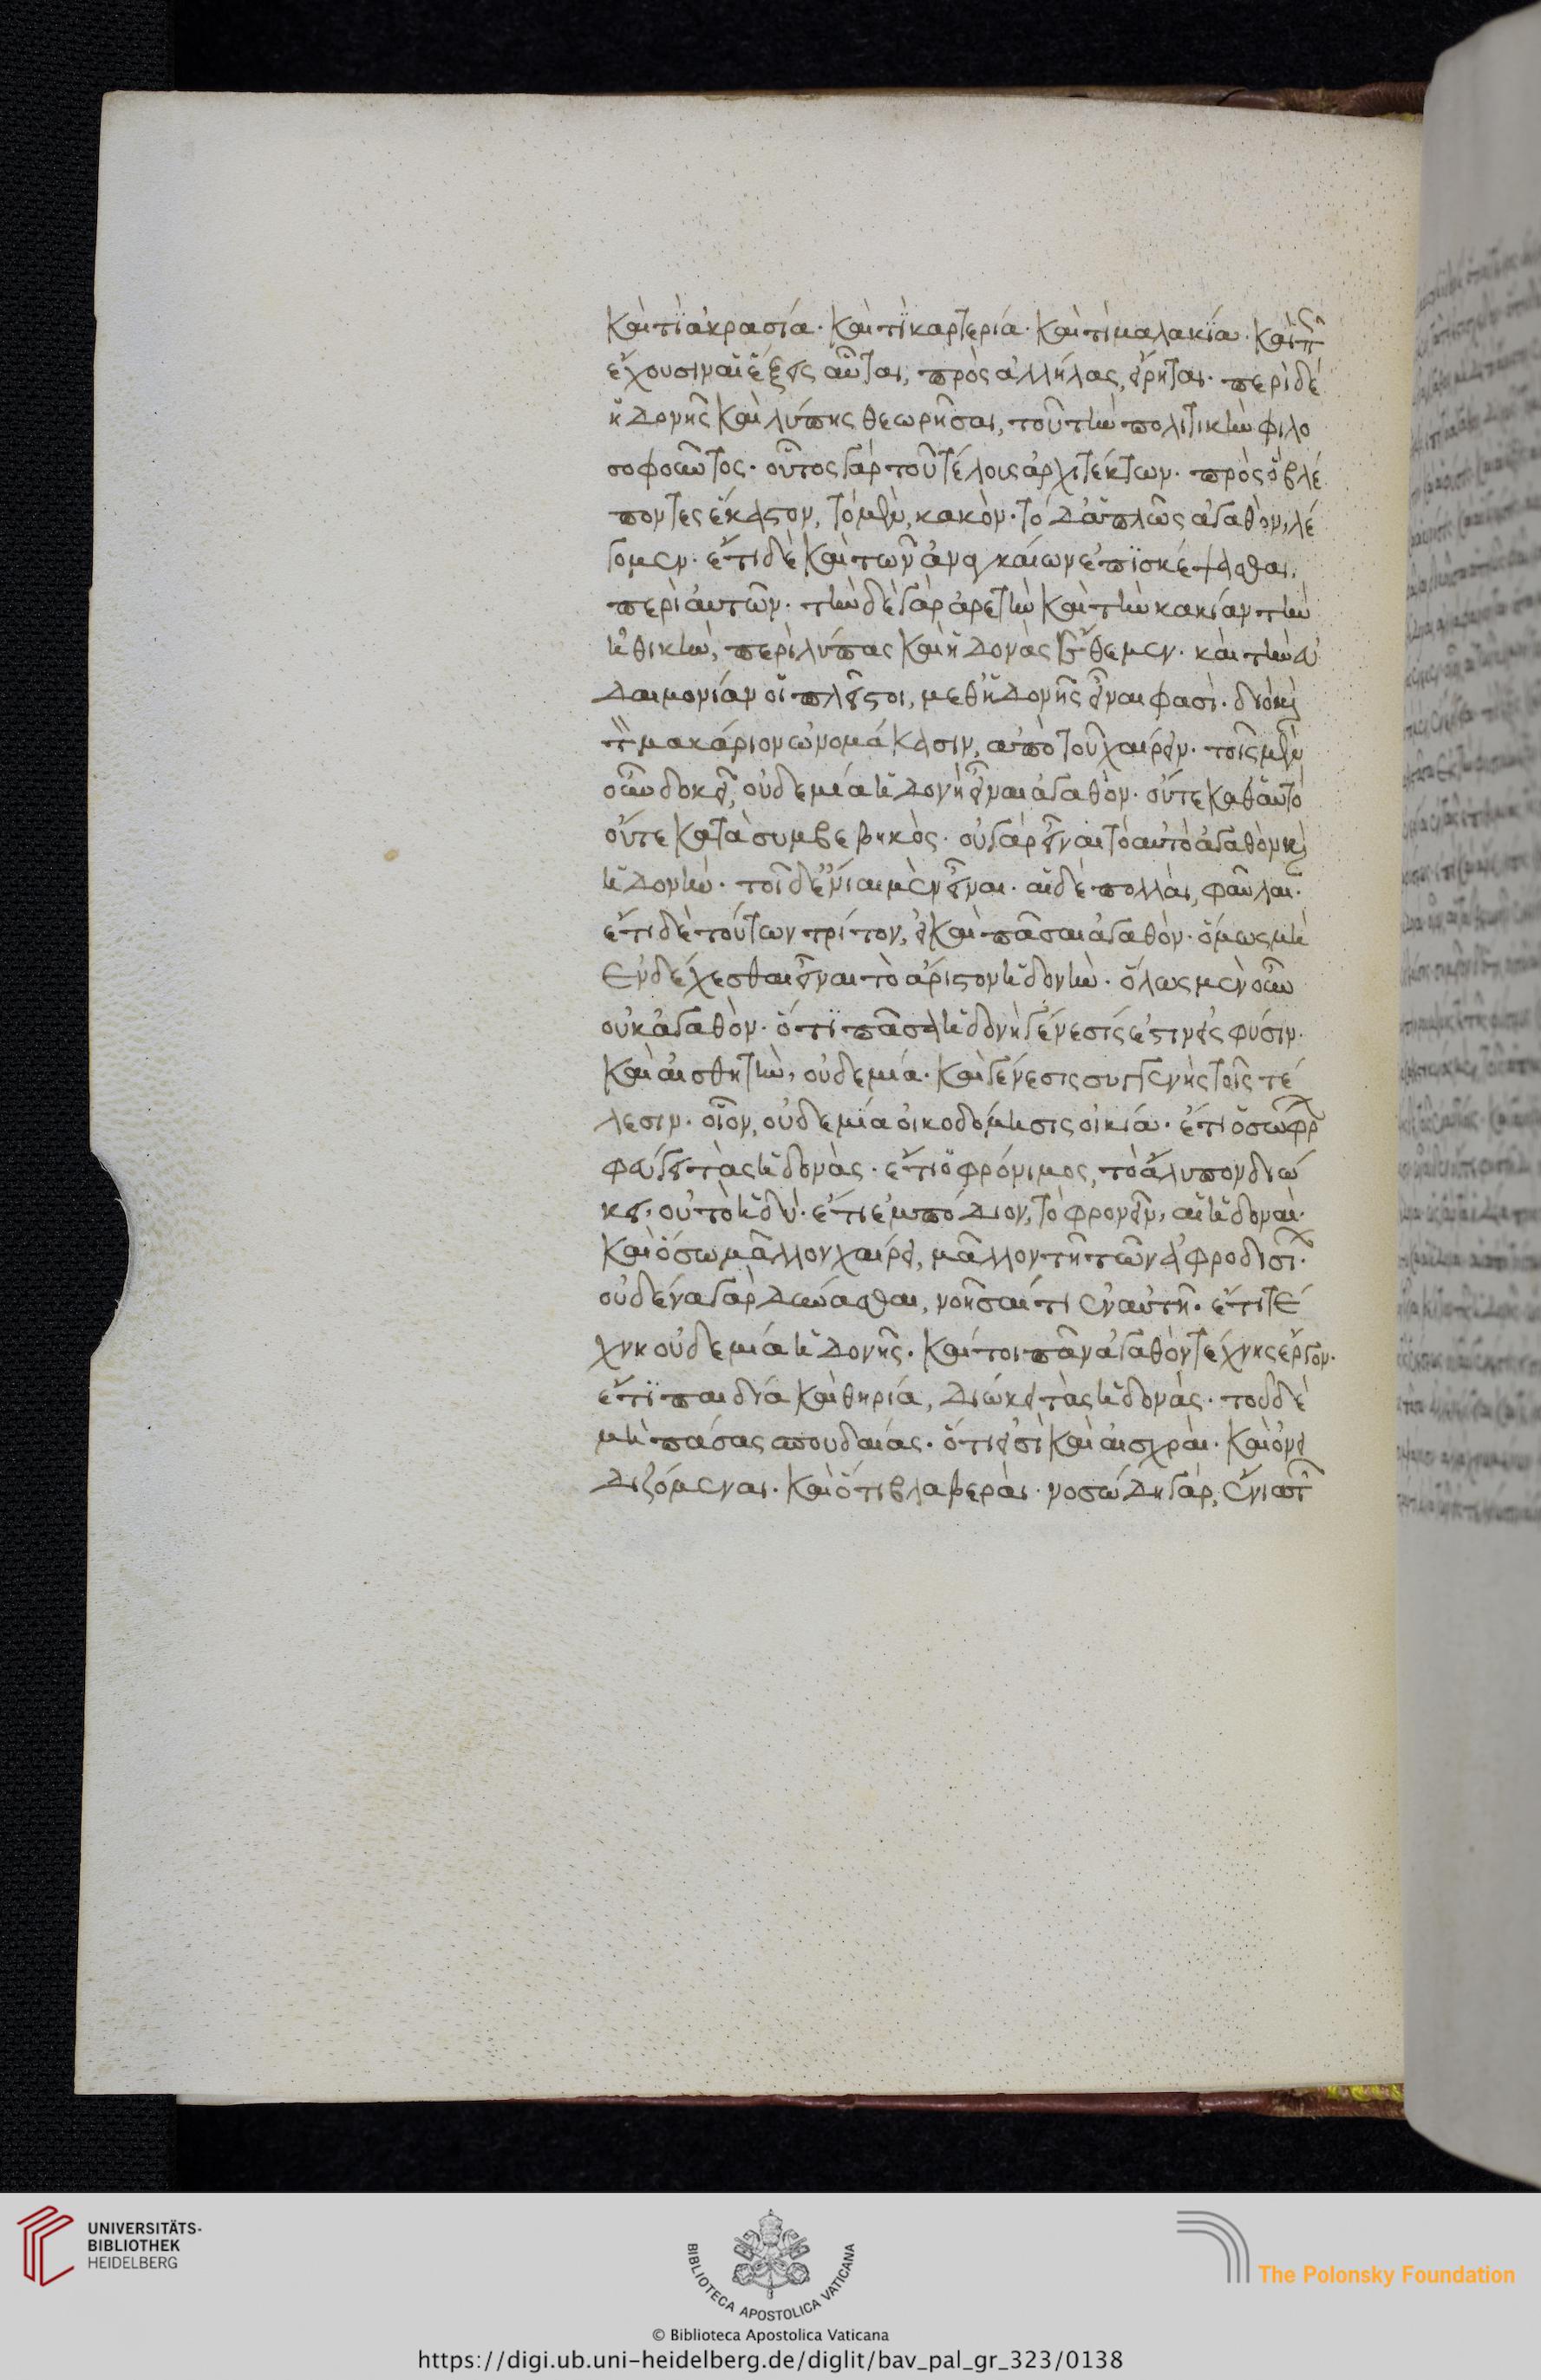 καὶ τί ἀκρασία· καὶ τί καρτερία· καὶ τί μαλακία· καὶ πῶς
ἔχουσιν αἱ ἕξεις αὗται, πρὸς ἀλλήλας, εἴρηται· περὶ δὲ
ἡδονῆς καὶ λύπης θεωρῆσαι, τοῦ τὴν πολιτικὴν φιλο
σοφοῦντος· οὗτος γὰρ τοῦ τέλους ἀρχιτέκτων· πρὸς ὃ βλέ
ποντες ἕκαστον, τὸ μὲν, κακὸν· τὸ δ' ἁπλῶς ἀγαθὸν, λέ
γομεν· ἔτι δὲ καὶ τῶν ἀναγκαίων ἐπισκέψασθαι,
περὶ αὐτῶν· τὴν δὲ γὰρ ἀρετὴν καὶ τὴν κακίαν τὴν
ἠθικὴν, περὶ λύπας καὶ ἡδονὰς ἔθεμεν· καὶ τὴν εὐ
δαιμονίαν οἱ πλεῖστοι, μεθ' ἡδονῆς εἶναι φασὶ· διὸ καὶ
τὸν μακάριον ὠνομάκασιν, ἀπὸ τοῦ χαίρειν· τοῖς μὲν
οὖν δοκεῖ, οὐδεμία ἡδονὴ εἶναι ἀγαθὸν· οὔτε καθ' αὑτὸ
οὔτε κατὰ συμβεβηκὸς· οὐ γὰρ εἶναι τὸ αὐτὸ ἀγαθὸν καὶ
ἡδονὴν· τοῖ δ' ἔνιαι μὲν εἶναι· αἱ δὲ πολλαὶ, φαῦλαι·
ἔτι δὲ τούτων τρίτον, εἰ καὶ πᾶσαι ἀγαθὸν· ὅμως μὴ
ἐνδέχεσθαι εἶναι τὸ ἄριστον ἡδονὴν· ὅλως μὲν οὖν
οὐκ ἀγαθὸν· ὅτι πᾶσα ἡδονὴ γένεσίς ἐστιν εἰς φύσιν·
καὶ αἰσθητὴν, οὐδεμία· καὶ γένεσις συγγενὴς τοῖς τέ
λεσιν· οἷον, οὐδεμία οἰκοδόμησις οἰκία· ἔτι ὁ σώφρ
φεύγει τὰς ἡδονὰς· ἔτι ὁ φρόνιμος, τὸ ἄλυπον διώ
κει, οὐ τὸ ἡδύ· ἔτι ἐμπόδιον, τὸ φρονεῖν, αἱ ἡδοναὶ·
καὶ ὅσω μᾶλλον χαίρει, μᾶλλον τῇ τῶν ἀφροδισι·
οὐδένα γὰρ δύνασθαι, νοῆσαί τι ἐν αὐτῇ· ἔτι τέ
χνη οὐδεμία ἡδονῆς· καίτοι πᾶν ἀγαθὸν τέχνης ἔργον·
ἔτι παιδία καὶ θηρία, διώκει τὰς ἡδονὰς· τοῦ δὲ
μὴ πάσας σπουδαίας· ὅτι εἰσὶ καὶ αἰσχραὶ· καὶ ὀνει
διζόμεναι· καὶ ὅτι βλαβεραὶ· νοσώδη γὰρ, ἔνια τ
UNIVERSITÄTS-
BIBLIOTHEK
HEIDELBERG
BIBLIOTECA APOSTOLICA VATICANA
The Polonsky Foundation
© Biblioteca Apostolica Vaticana
https://digi.ub.uni-heidelberg.de/diglit/bav_pal_gr_323/0138